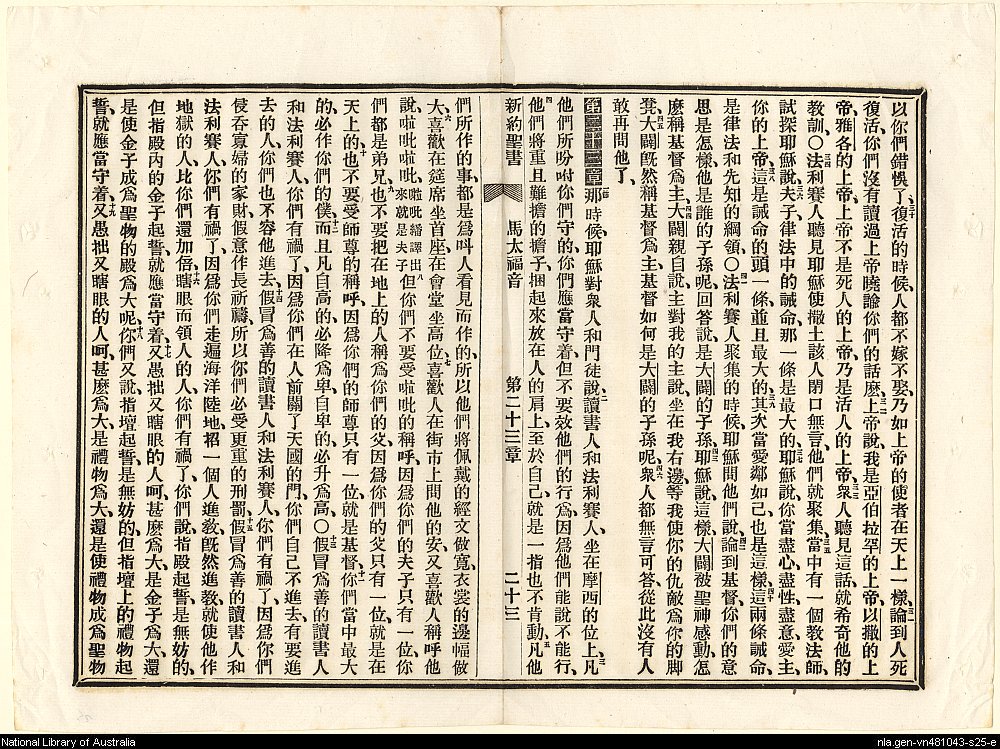 以你們錯悞了、復活的時候、人都不嫁不娶、乃如上帝的使者在天上一樣、論到人死
復活、你們沒有讀過上帝曉諭你們的話麽、上帝說、我是亞伯拉罕的上帝、以撒的上
帝、雅各的上帝、上帝不是死人的上帝、乃是活人的上帝、衆人聽見這話、就希奇他的
教訓、○法利賽人聽見耶穌使撒土該人閉口無言、他們就聚集、當中有一個教法師、
試探耶穌說、夫子、律法中的誡命、那一條是最大的、耶穌說、你當盡心盡性盡意、愛主
你的上帝、這是誡命的頭一條、並且最大的、其次當愛鄰如己、也是這樣、這兩條誡命、
是律法和先知的綱領、○法利賽人聚集的時候、耶穌問他們說、論到基督、你們的意
思是怎樣、他是誰的子孫呢、回答說、是大闢的子孫、耶穌說、這樣大闢被聖神感動、怎
麽稱基督爲主、大闢親自說、主對我的主說、坐在我右邊、等我使你的仇敵、爲你的脚
凳、大闢旣然稱基督爲主、基督如何是大闢的子孫呢、衆人都無言可答、從此沒有人
敢再問他了、
第二十三章 那時候、耶穌對衆人和門徒說、讀書人和法利賽人、坐在摩西的位上、凡
他們所吩咐你們守的、你們應當守着、但不要效他們的行爲、因爲他們能說不能行、
他們將重且難擔的擔子、捆起來放在人的肩上、至於自己、就是一指也不肯動、凡他
新約聖書 馬太福音 第二十三章 二十三
們所作的事、都是爲呌人看見而作的、所以他們將佩戴的經文做寬、衣裳的邊幅做
大、喜歡在筵席坐首座、在會堂坐高位、喜歡人在街市上問他的安、又喜歡人稱呼他
說、啦吡啦吡、啦吡繙譯出來就是夫子 但你們不要受啦吡的稱呼、因爲你們的夫子只有一位、你
們都是弟兄、也不要把在地上的人稱爲你們的父、因爲你們的父只有一位、就是在
天上的、也不要受師尊的稱呼、因爲你們的師尊只有一位、就是基督、你們當中最大
的、必作你們的僕、而且凡自高的必降爲卑、自卑的必升爲高、○假冒爲善的讀書人
和法利賽人、你們有禍了、因爲你們在人前關了天國的門、你們自己不進去、有要進
去的人、你們也不容他進去、假冒爲善的讀書人和法利賽人、你們有禍了、因爲你們
侵吞寡婦的家財、假意作長祈禱、所以你們必受更重的刑罰、假冒爲善的讀書人和
法利賽人、你們有禍了、因爲你們走遍海洋陸地、招一個人進敎、旣然進敎、就使他作
地獄的人、比你們還加倍、瞎眼而領人的人、你們有禍了、你們說、指殿起誓、是無妨的、
但指殿內的金子起誓、就應當守着、又愚拙又瞎眼的人呵、甚麽爲大、是金子爲大、還
是使金子成爲聖物的殿爲大呢、你們又說、指壇起誓、是無妨的、但指壇上的禮物起
誓、就應當守着、又愚拙又瞎眼的人呵、甚麽爲大、是禮物爲大、還是使禮物成爲聖物
National Library of Australia
nla.gen-vn481043-s25-e